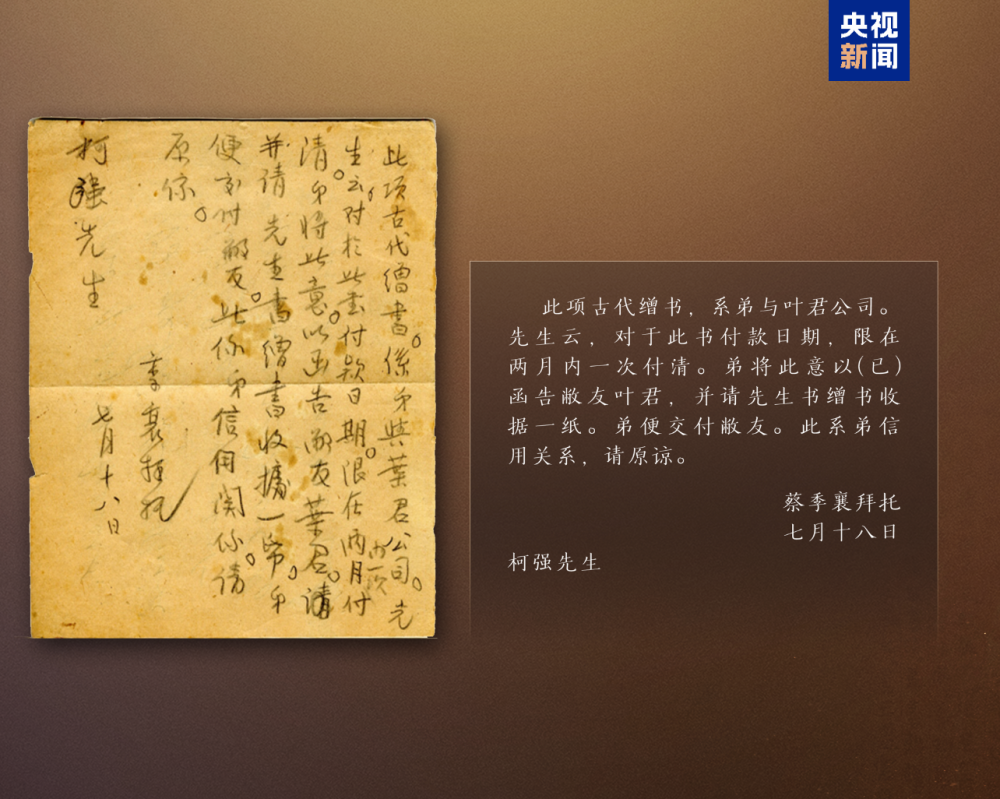 央视
新闻
此项古代缯書。係弟與葉君公司。先
生云，对於此書付款日期。限在两月内一次付
清。弟将此意以函告敝友葉君。请
并请先生書缯書收據一帋。弟
便交付敝友。此係弟信用関係。请
原谅。
柯强先生
季襄拜托
七月十八日
此项古代缯书，系弟与叶君公司。
先生云，对于此书付款日期，限在
两月内一次付清。弟将此意以(已)
函告敝友叶君，并请先生书缯书收
据一纸。弟便交付敝友。此系弟信
用关系，请原谅。
蔡季襄拜托
七月十八日
柯强先生